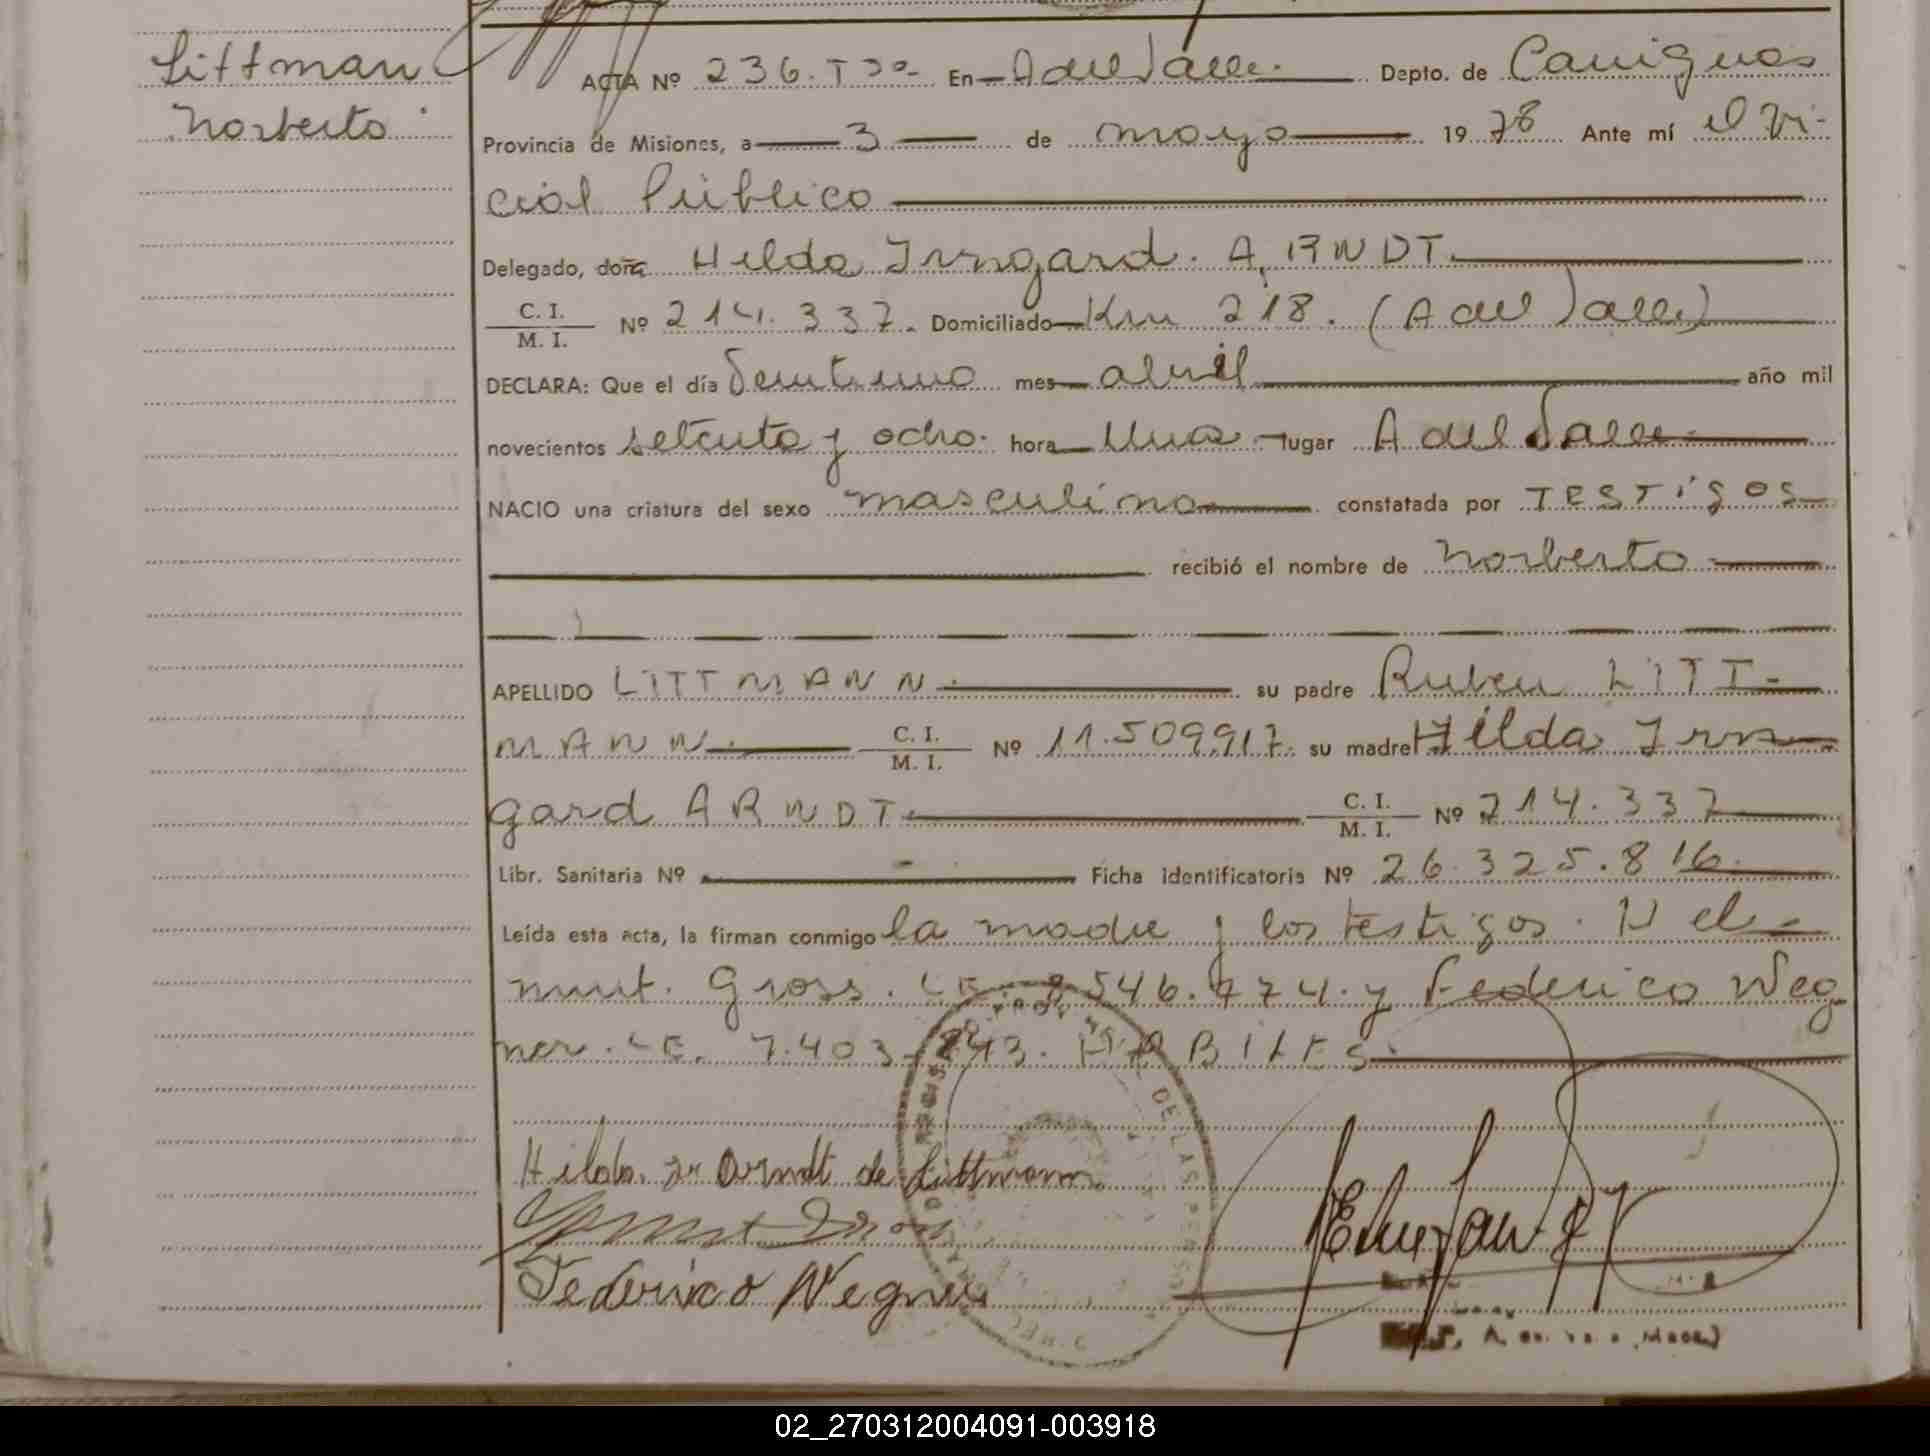 Littman
Norberto
ACTA Nº 236. Tº En A del Valle. Depto. de Cainguas
Provincia de Misiones, a 3 de mayo 1978 Ante mí el Ofi-
cial Público
Delegado, doña Hilda Irmgard. ARNDT.
C. I. / M. I. Nº 214.337. Domiciliado Km 218. (A del Valle)
DECLARA: Que el día Veintiuno mes abril año mil
novecientos setenta y ocho. hora Una lugar A del Valle
NACIO una criatura del sexo masculino constatada por TESTIGOS
recibió el nombre de Norberto
APELLIDO LITTMANN. su padre Ruben LITT-
MANN. C. I. / M. I. Nº 11.509.917. su madre Hilda Irm-
gard ARNDT C. I. / M. I. Nº 214.337
Libr. Sanitaria Nº Ficha identificatoria Nº 26.325.816.
Leída esta acta, la firman conmigo la madre y los testigos. Hel-
mut. Gross. LE. 8.546.774. y Federico Weg
ner. LE. 7.403.243. HABILES.
Hilda Ir Arndt de Littmann
Federico Wegner
DE LAS PERSONAS
02_270312004091-003918